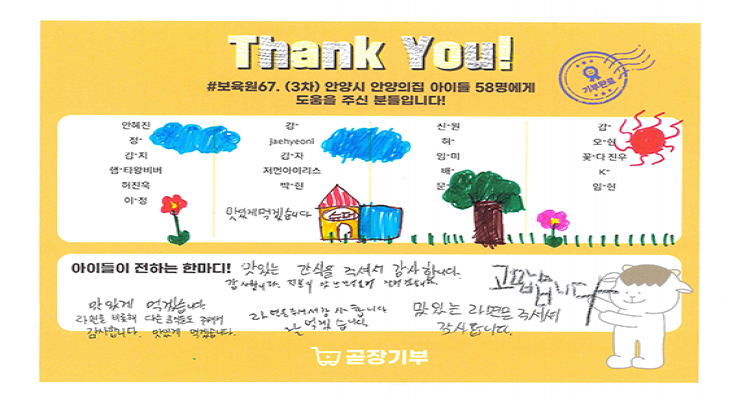 Thank You!
#보육원67. (3차) 안양시 안양의집 아이들 58명에게
도움을 주신 분들입니다!
기부완료
안혜진 강* 신*원 김*
정* jaehyeonl 허* 오*현
김*지 김*자 임*미 꽃*다 진우
햄*타왕비버 저먼아이리스 배* K*
허진욱 박*현 문* 임*현
이*정
맛있게 먹겠습니다
슈퍼
아이들이 전하는 한마디!
맛있는 간식을 주셔서 감사합니다.
감사합니다.
고맙습니다
맛있게 먹겠습니다
라면을 비롯해 다른 음식들도 주셔서
감사합니다. 맛있게 먹겠습니다.
라면 주셔서 감사합니다
잘 먹겠습니다.
맛있는 라면을 주셔서
감사합니다.
곧장기부